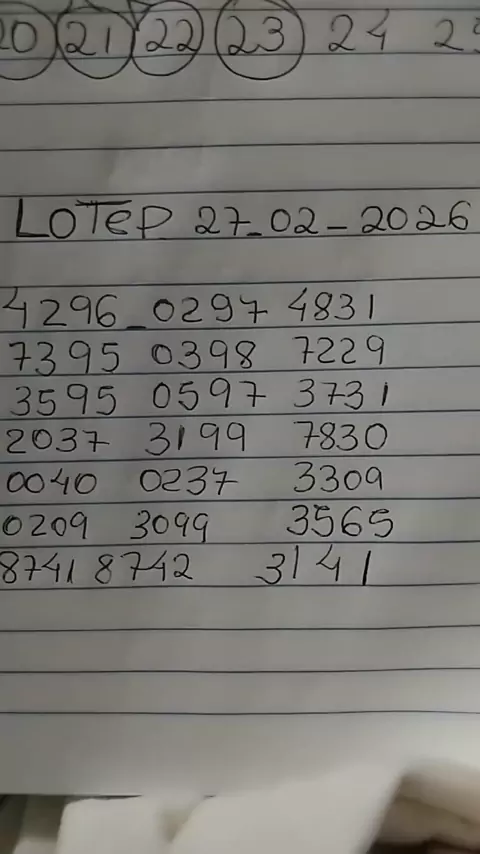 20 21 22 23 24
LOTEP 27-02-2026
4296-0297 4831
7395 0398 7229
3595 0597 3731
2037 3199 7830
0040 0237 3309
0209 3099 3565
8741 8742 3141